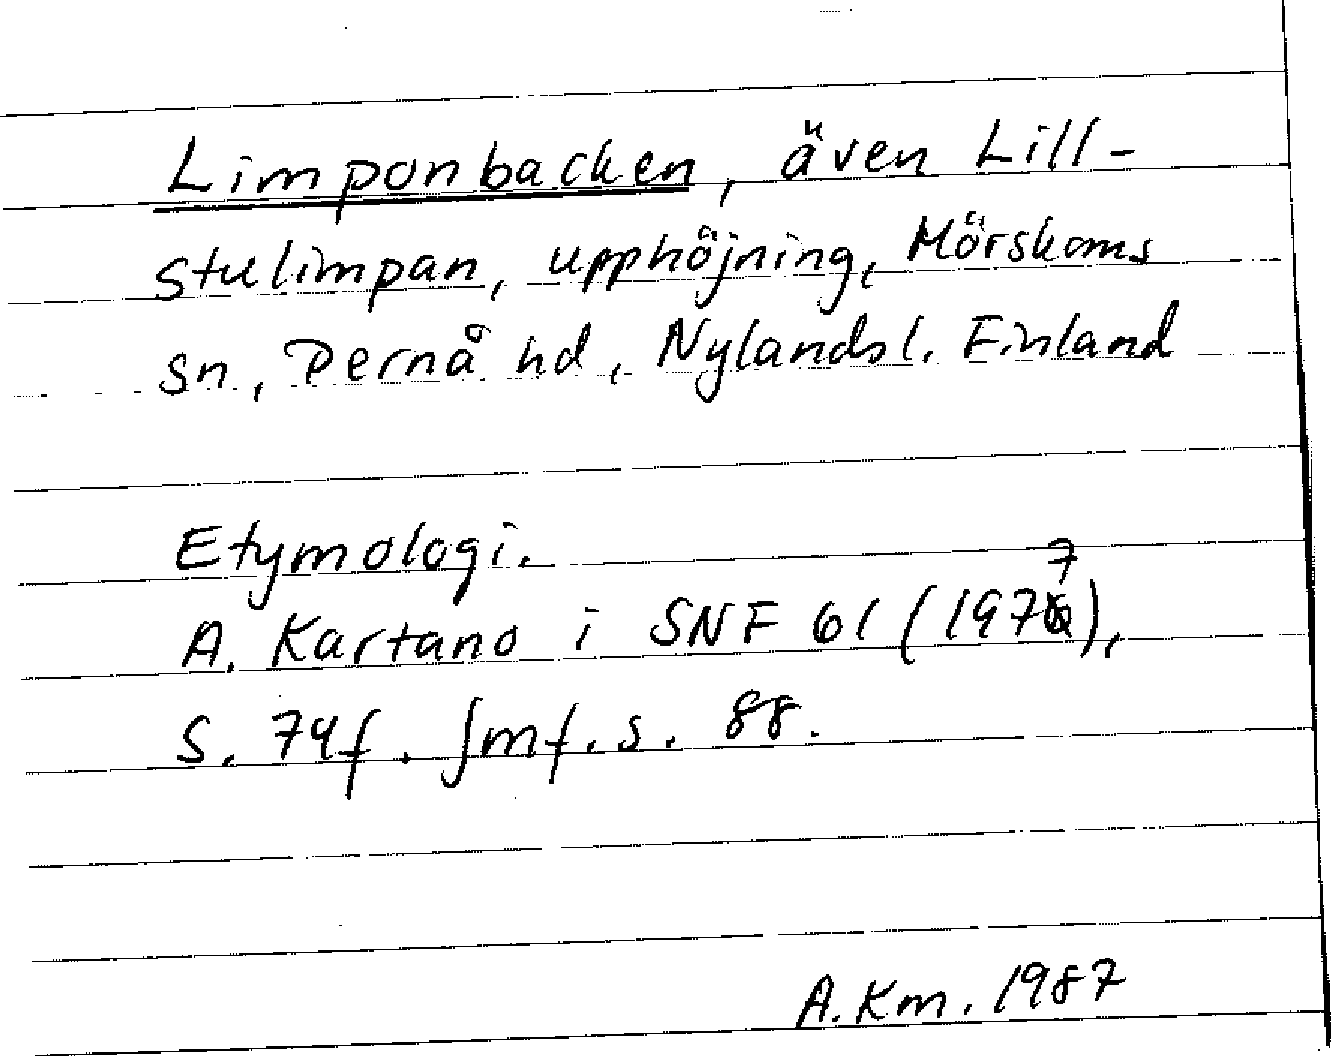 Limponbacken, även Lill-
stulimpan, upphöjning, Mörskoms
sn, Pernå hd, Nylands l. Finland
Etymologi.
A. Kartano i SNF 61 (1977),
S. 74f. Jmf. s. 88.
A. Km. 1987